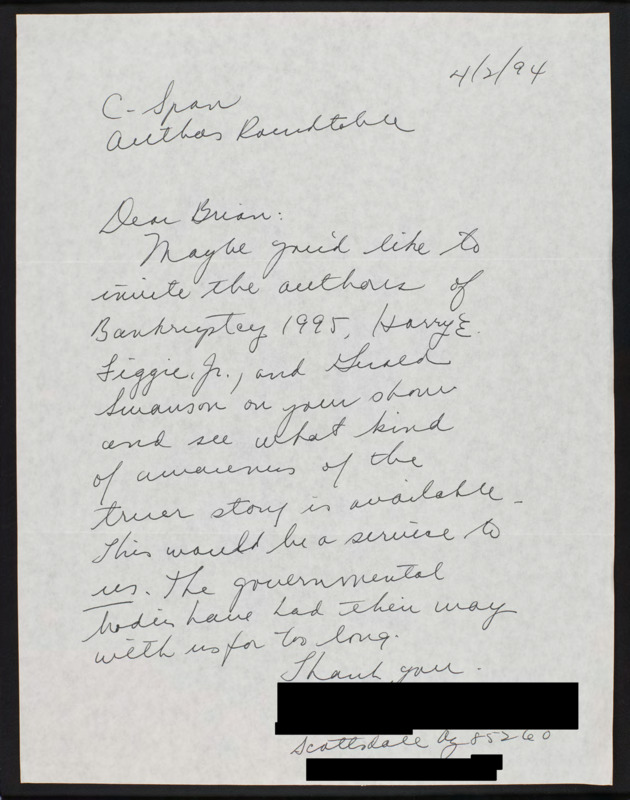 4/2/94
C-Span
Authors Roundtable
Dear Brian:
Maybe you'd like to
invite the authors of
Bankruptcy 1995, Harry E.
Figgie, Jr., and Gerald
Swanson on your show
and see what kind
of awareness of the
truer story is available.
This would be a service to
us. The governmental
bodies have had their way
with us for too long.
Thank you.
Scottsdale Az 85260